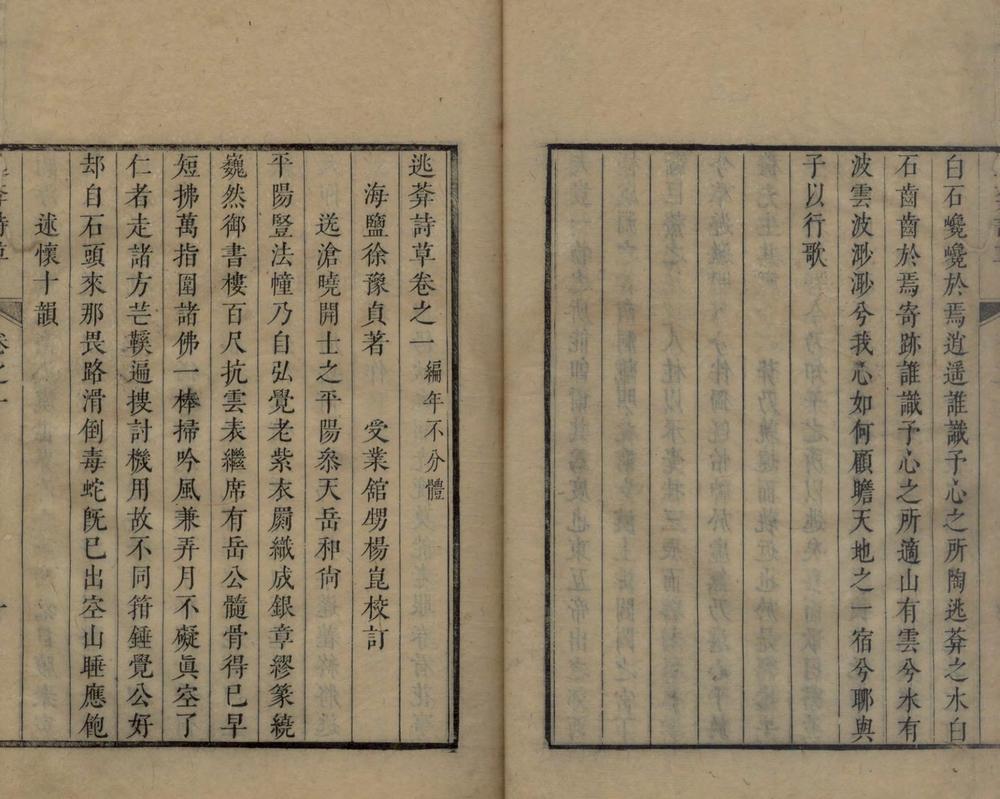 白石巉巉於焉逍遥誰識予心之所陶逃葊之水白
石齒齒於焉寄跡誰識予心之所適山有雲兮水有
波雲波渺渺兮我心如何顧瞻天地之一宿兮聊與
子以行歌
逃葊詩草卷之一 編年不分體
海鹽徐豫貞著 受業舘甥楊崑校訂
送滄曉開士之平陽叅天岳和尙
平陽豎法幢乃自弘覺老紫衣罽織成銀章繆篆繞
巍然御書樓百尺抗雲表繼席有岳公髓骨得已早
短拂萬指圍諸佛一棒掃吟風兼弄月不礙眞空了
仁者走諸方芒鞵遍搜討機用故不同箝錘覺公好
却自石頭來那畏路滑倒毒蛇旣已出空山睡應飽
述懷十韻
卷之一
一